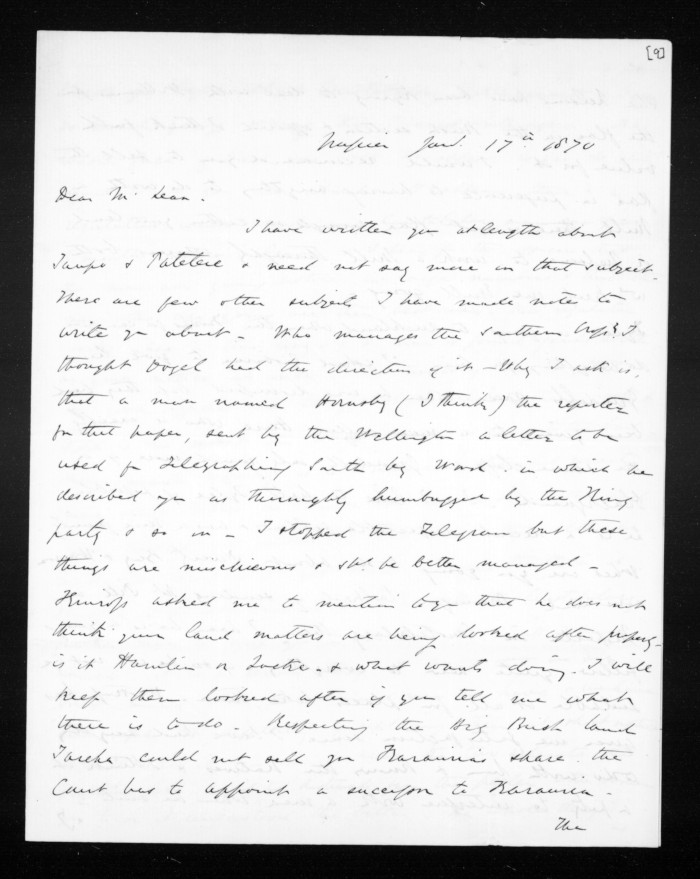 [9]
Napier Jany. 17th 1870
Dear McLean.
I have written you at length about
Taupo & Patetere & need not say more on that subject.
There are few other subjects I have made notes to
write you about - Who manages the Southern Cross? I
thought Vogel had the direction of it - Why I ask is,
that a man named Hornsby (I think) the reporter
for that paper, sent by the Wellington a letter to be
used for Telegraphing South by Ward in which he
described you as thoroughly humbugged by the King
party & so on - I stopped the Telegram but these
things are mischievous & shd. be better managed -
asked me to mention to you that he does not
think your land matters are being looked after properly -
is it Hamlin or Locke - & what wants doing. I will
keep them looked after if you tell me what
there is to do. Respecting the Big Bush land
Tareha could not sell you Karaurias share. the
Court has to appoint a successor to Karauria.
The